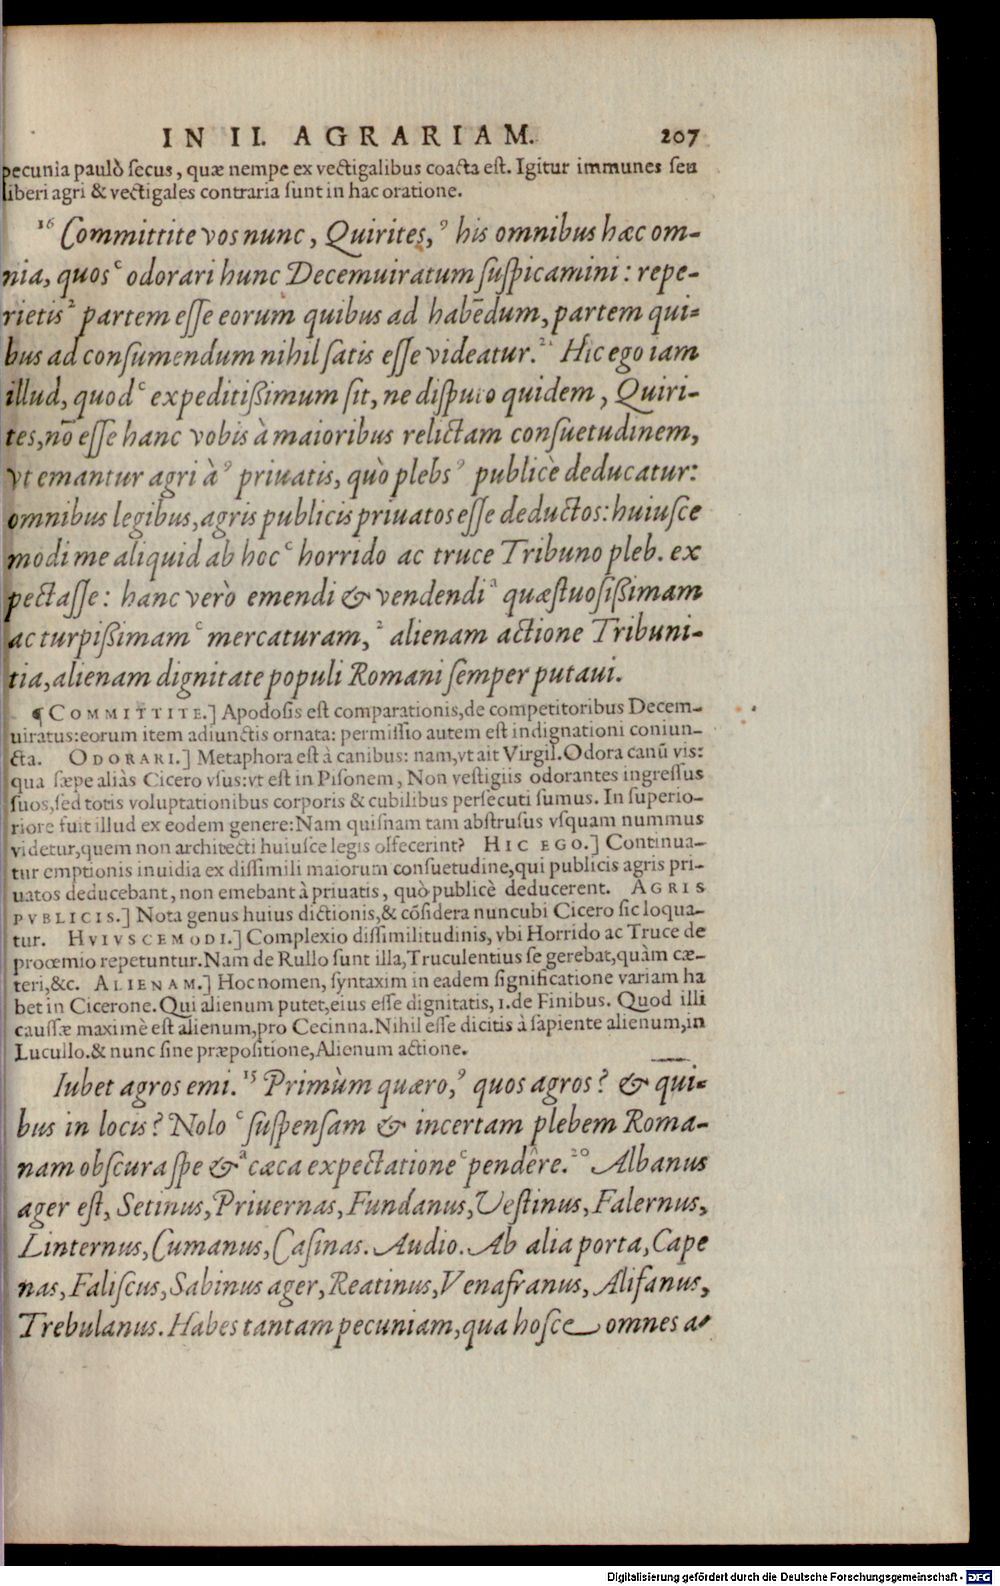 IN II. AGRARIAM. 207
pecunia paulò secus, quæ nempe ex vectigalibus coacta est. Igitur immunes seu
liberi agri & vectigales contraria sunt in hac oratione.
16 Committite vos nunc, Quirites, ⁹ his omnibus hæc om-
nia, quos ᶜ odorari hunc Decemuiratum suspicamini: repe-
rietis ² partem esse eorum quibus ad habēdum, partem qui-
bus ad consumendum nihil satis esse videatur. ²¹ Hic ego iam
illud, quod ᶜ expeditißimum sit, ne disputo quidem, Quiri-
tes, nō esse hanc vobis à maioribus relictam consuetudinem,
vt emantur agri à ⁹ priuatis, quò plebs ⁹ publicè deducatur:
omnibus legibus, agris publicis priuatos esse deductos: huiusce
modi me aliquid ab hoc ᶜ horrido ac truce Tribuno pleb. ex
pectasse: hanc verò emendi & vendendi ² quæstuosißimam
ac turpißimam ᶜ mercaturam, ² alienam actione Tribuni-
tia, alienam dignitate populi Romani semper putaui.
¶ COMMITTITE.] Apodosis est comparationis, de competitoribus Decem-
uiratus: eorum item adiunctis ornata: permissio autem est indignationi coniun-
cta. ODORARI.] Metaphora est à canibus: nam, vt ait Virgil. Odora canū vis:
qua sæpe aliàs Cicero vsus: vt est in Pisonem, Non vestigiis odorantes ingressus
suos, sed totis voluptationibus corporis & cubilibus persecuti sumus. In superio-
riore fuit illud ex eodem genere: Nam quisnam tam abstrusus vsquam nummus
videtur, quem non architecti huiusce legis olfecerint? HIC EGO.] Continua-
tur emptionis inuidia ex dissimili maiorum consuetudine, qui publicis agris pri-
uatos deducebant, non emebant à priuatis, quò publicè deducerent. AGRIS
PVBLICIS.] Nota genus huius dictionis, & cōsidera nuncubi Cicero sic loqua-
tur. HVIVSCEMODI.] Complexio dissimilitudinis, vbi Horrido ac Truce de
proœmio repetuntur. Nam de Rullo sunt illa, Truculentius se gerebat, quàm cæ-
teri, &c. ALIENAM.] Hoc nomen, syntaxim in eadem significatione variam ha
bet in Cicerone. Qui alienum putet, eius esse dignitatis, 1. de Finibus. Quod illi
caussæ maximè est alienum, pro Cecinna. Nihil esse dicitis à sapiente alienum, in
Lucullo. & nunc sine præpositione, Alienum actione.
Iubet agros emi. ¹⁵ Primùm quæro, ⁹ quos agros? & qui-
bus in locis? Nolo ᶜ suspensam & incertam plebem Roma-
nam obscura spe & ² cæca expectatione ᶜ pendēre. ²⁰ Albanus
ager est, Setinus, Priuernas, Fundanus, Vestinus, Falernus,
Linternus, Cumanus, Casinas. Audio. Ab alia porta, Cape
nas, Faliscus, Sabinus ager, Reatinus, Venafranus, Alifanus,
Trebulanus. Habes tantam pecuniam, qua hosce omnes a-
Digitalisierung gefördert durch die Deutsche Forschungsgemeinschaft - DFG